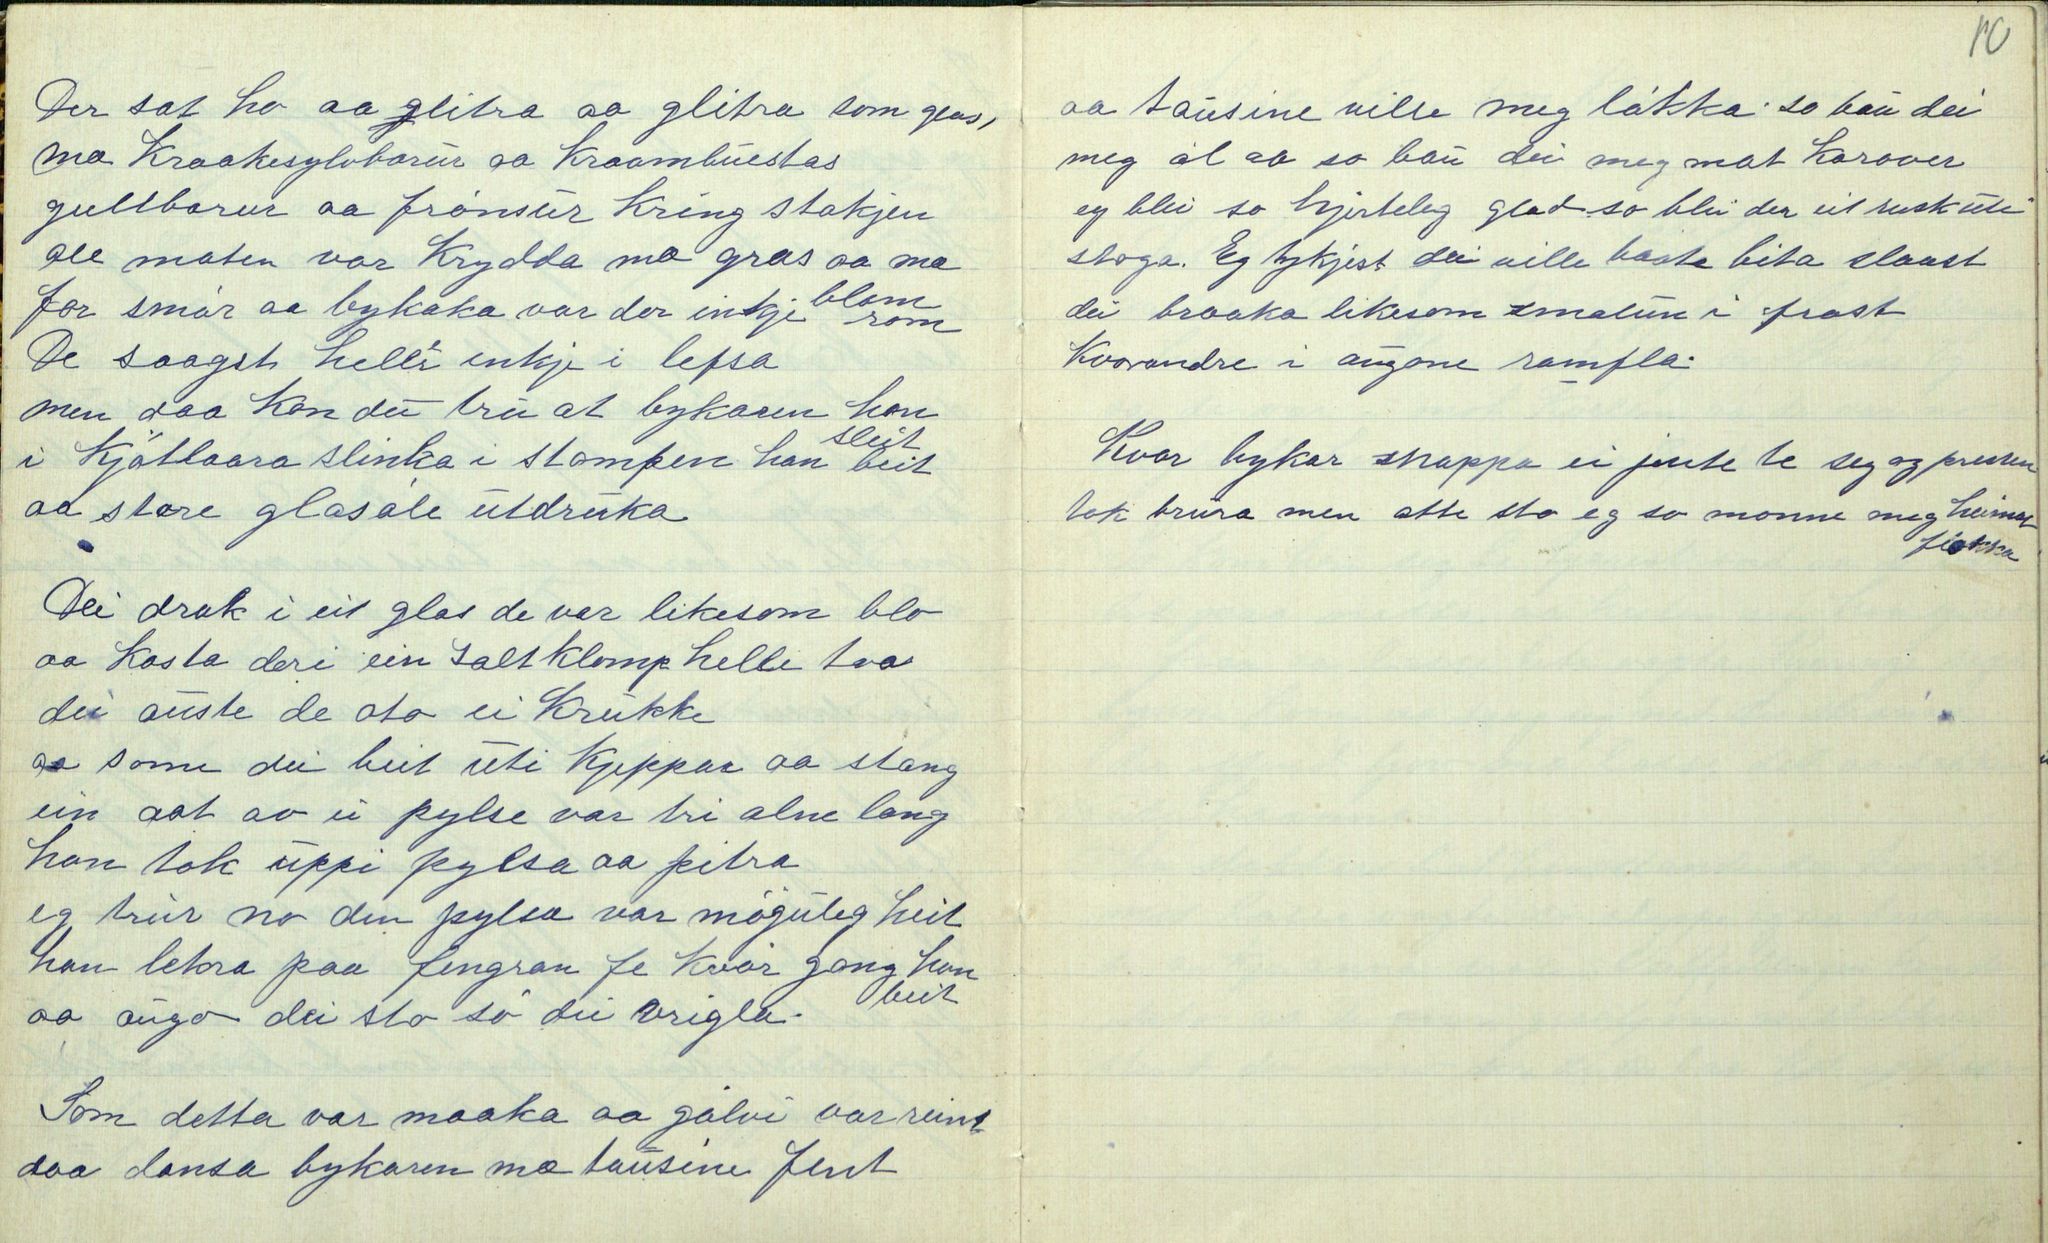 Der sat ho aa glitra aa glitra som glas,
ma Kraakesylvborur aa Kraambuestas
gullborur aa frónsur kring stakjen
all maten var Krydda ma gras aa ma blom
for smör aa bykaka var der inkje rom
De saagst helli inkje i lefsa
men daa kan du tru at bykaren han sleit
i Kjötlaara slinka i stompen han beit
aa store glasóle utdrukka

Dei drak i eit glas de var likesom blo
aa kasta deri ein saltklomp helle tvo
dei auste de oto ei krukke
aa some dei beit uti Kjeppar aa stang
ein aat av ei pylse var tri alne lang
han tok uppi pylsa aa pitra
eg trur no den pylsa var móguleg heit
han letra paa fengran fe kvór gong han beit
aa augo dei sto só dei vrigla.

Som detta var maaka aa gólvi var reint
daa dansa bykaren ma tausine fent
10
aa tausine ville meg lókka so bau dei
meg ól aa so bau dei meg mat Karover
eg blei so hjerteleg glad so blei der eit rusk uti
stoga. Eg tykjest dei ville baate bita slaast
dei braaka likesom smalun i frost
Kvorandre i augone rampla.

Kvar bykar snappa ei jente te seg og presten
tok brura men atte sto eg so monne meg heimat
fiokka